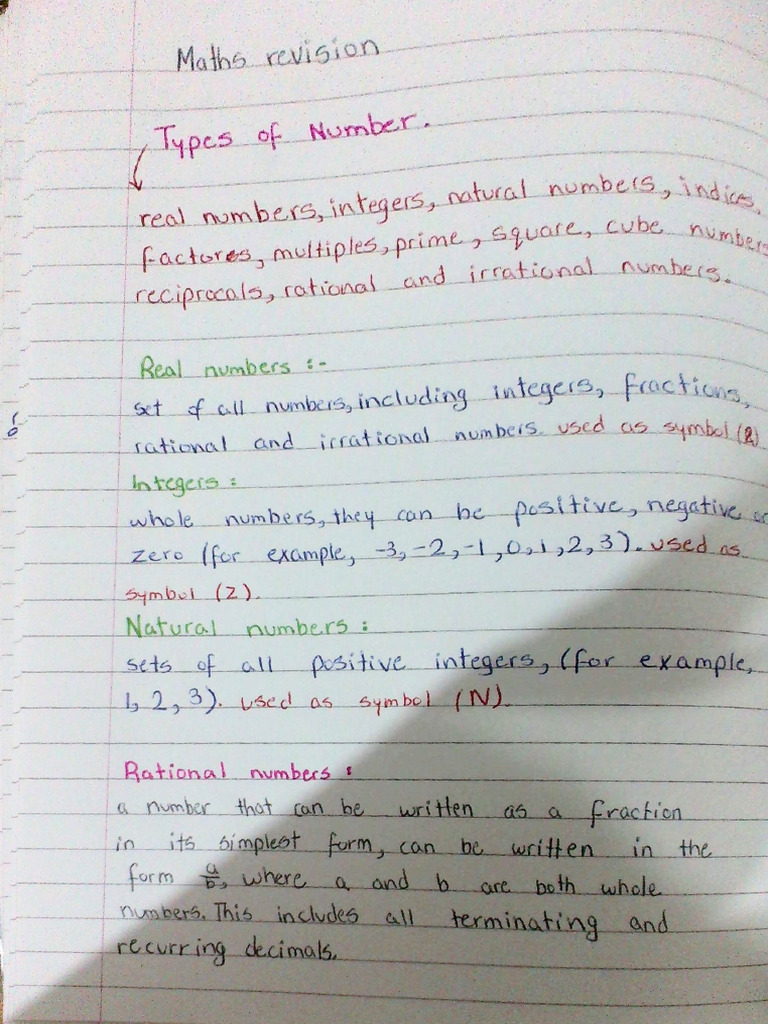 Maths revision
Types of Number.
real numbers, integers, natural numbers, indices,
factores, multiples, prime, square, cube numbers
reciprocals, rational and irrational numbers.
Real numbers :-
set of all numbers, including integers, fractions,
rational and irrational numbers. used as symbol (R)
Integers :
whole numbers, they can be positive, negative or
zero (for example, -3, -2, -1, 0, 1, 2, 3). used as
symbol (Z).
Natural numbers :
sets of all positive integers, (for example,
1, 2, 3). used as symbol (N).
Rational numbers :
a number that can be written as a fraction
in its simplest form, can be written in the
form a/b, where a and b are both whole
numbers. This includes all terminating and
recurring decimals.